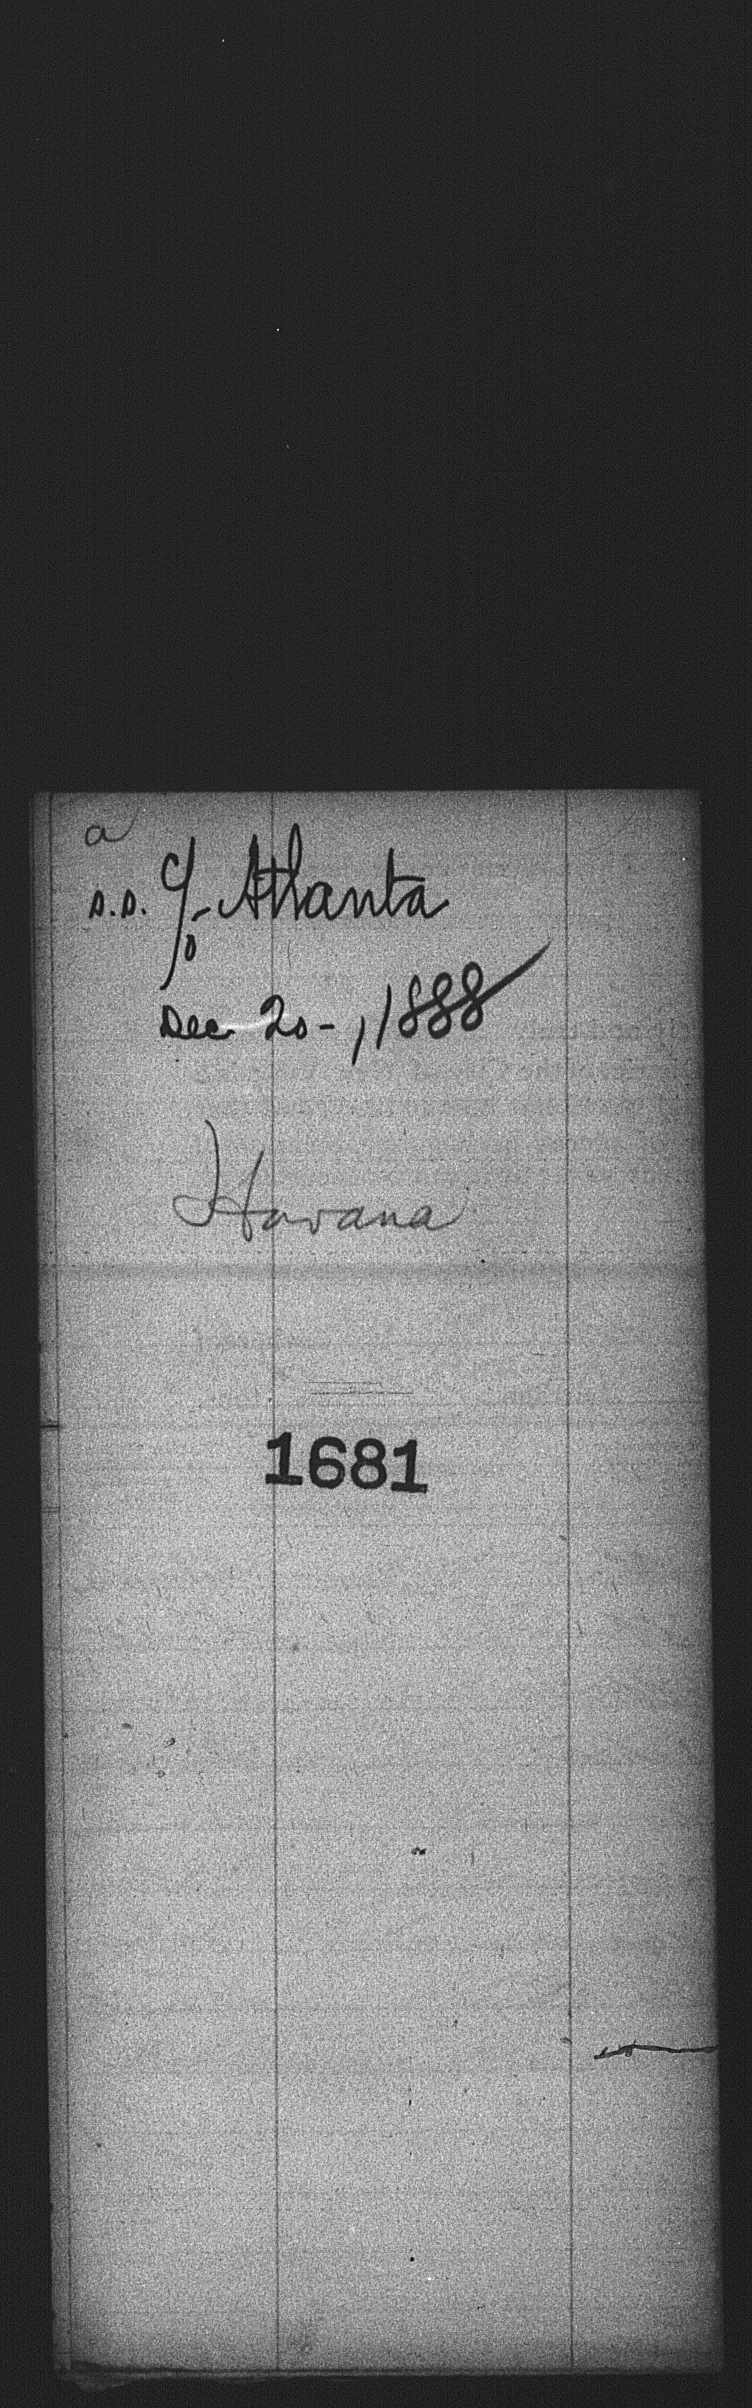 a
s.s. C/o Atlanta
Dec 20-, 1888
Havana
1681